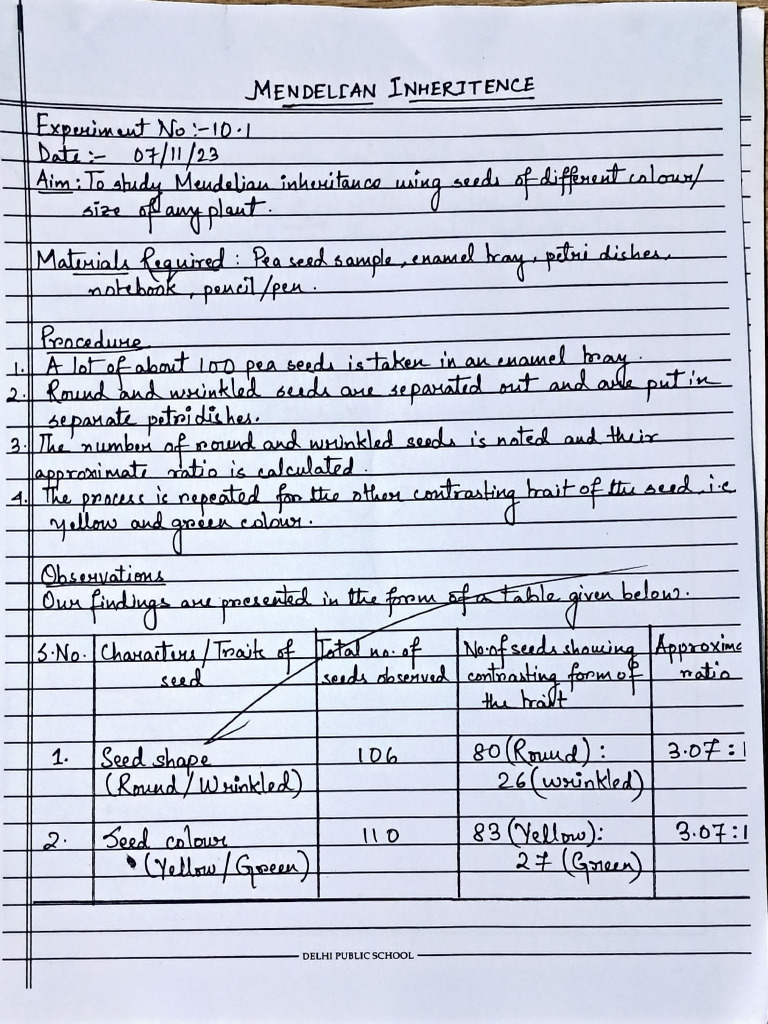 MENDELIAN INHERITENCE
Experiment No :- 10.1
Date :- 07/11/23
Aim : To study Mendelian inheritance using seeds of different colour/
size of any plant.
Materials Required : Pea seed sample, enamel tray, petri dishes,
notebook, pencil/pen.
Procedure
1. A lot of about 100 pea seeds is taken in an enamel tray.
2. Round and wrinkled seeds are separated out and are put in
separate petridishes.
3. The number of round and wrinkled seeds is noted and their
approximate ratio is calculated.
4. The process is repeated for the other contrasting trait of the seed, i.e
yellow and green colour.
Observations
Our findings are presented in the form of a table given below.
S.No. Characters/Traits of Total no. of No. of seeds showing Approxima
seed seeds observed contrasting form of ratio
the trait
1. Seed shape 106 80 (Round) : 3.07 : 1
(Round/Wrinkled) 26 (wrinkled)
2. Seed colour 110 83 (Yellow): 3.07 : 1
(Yellow/Green) 27 (Green)
DELHI PUBLIC SCHOOL